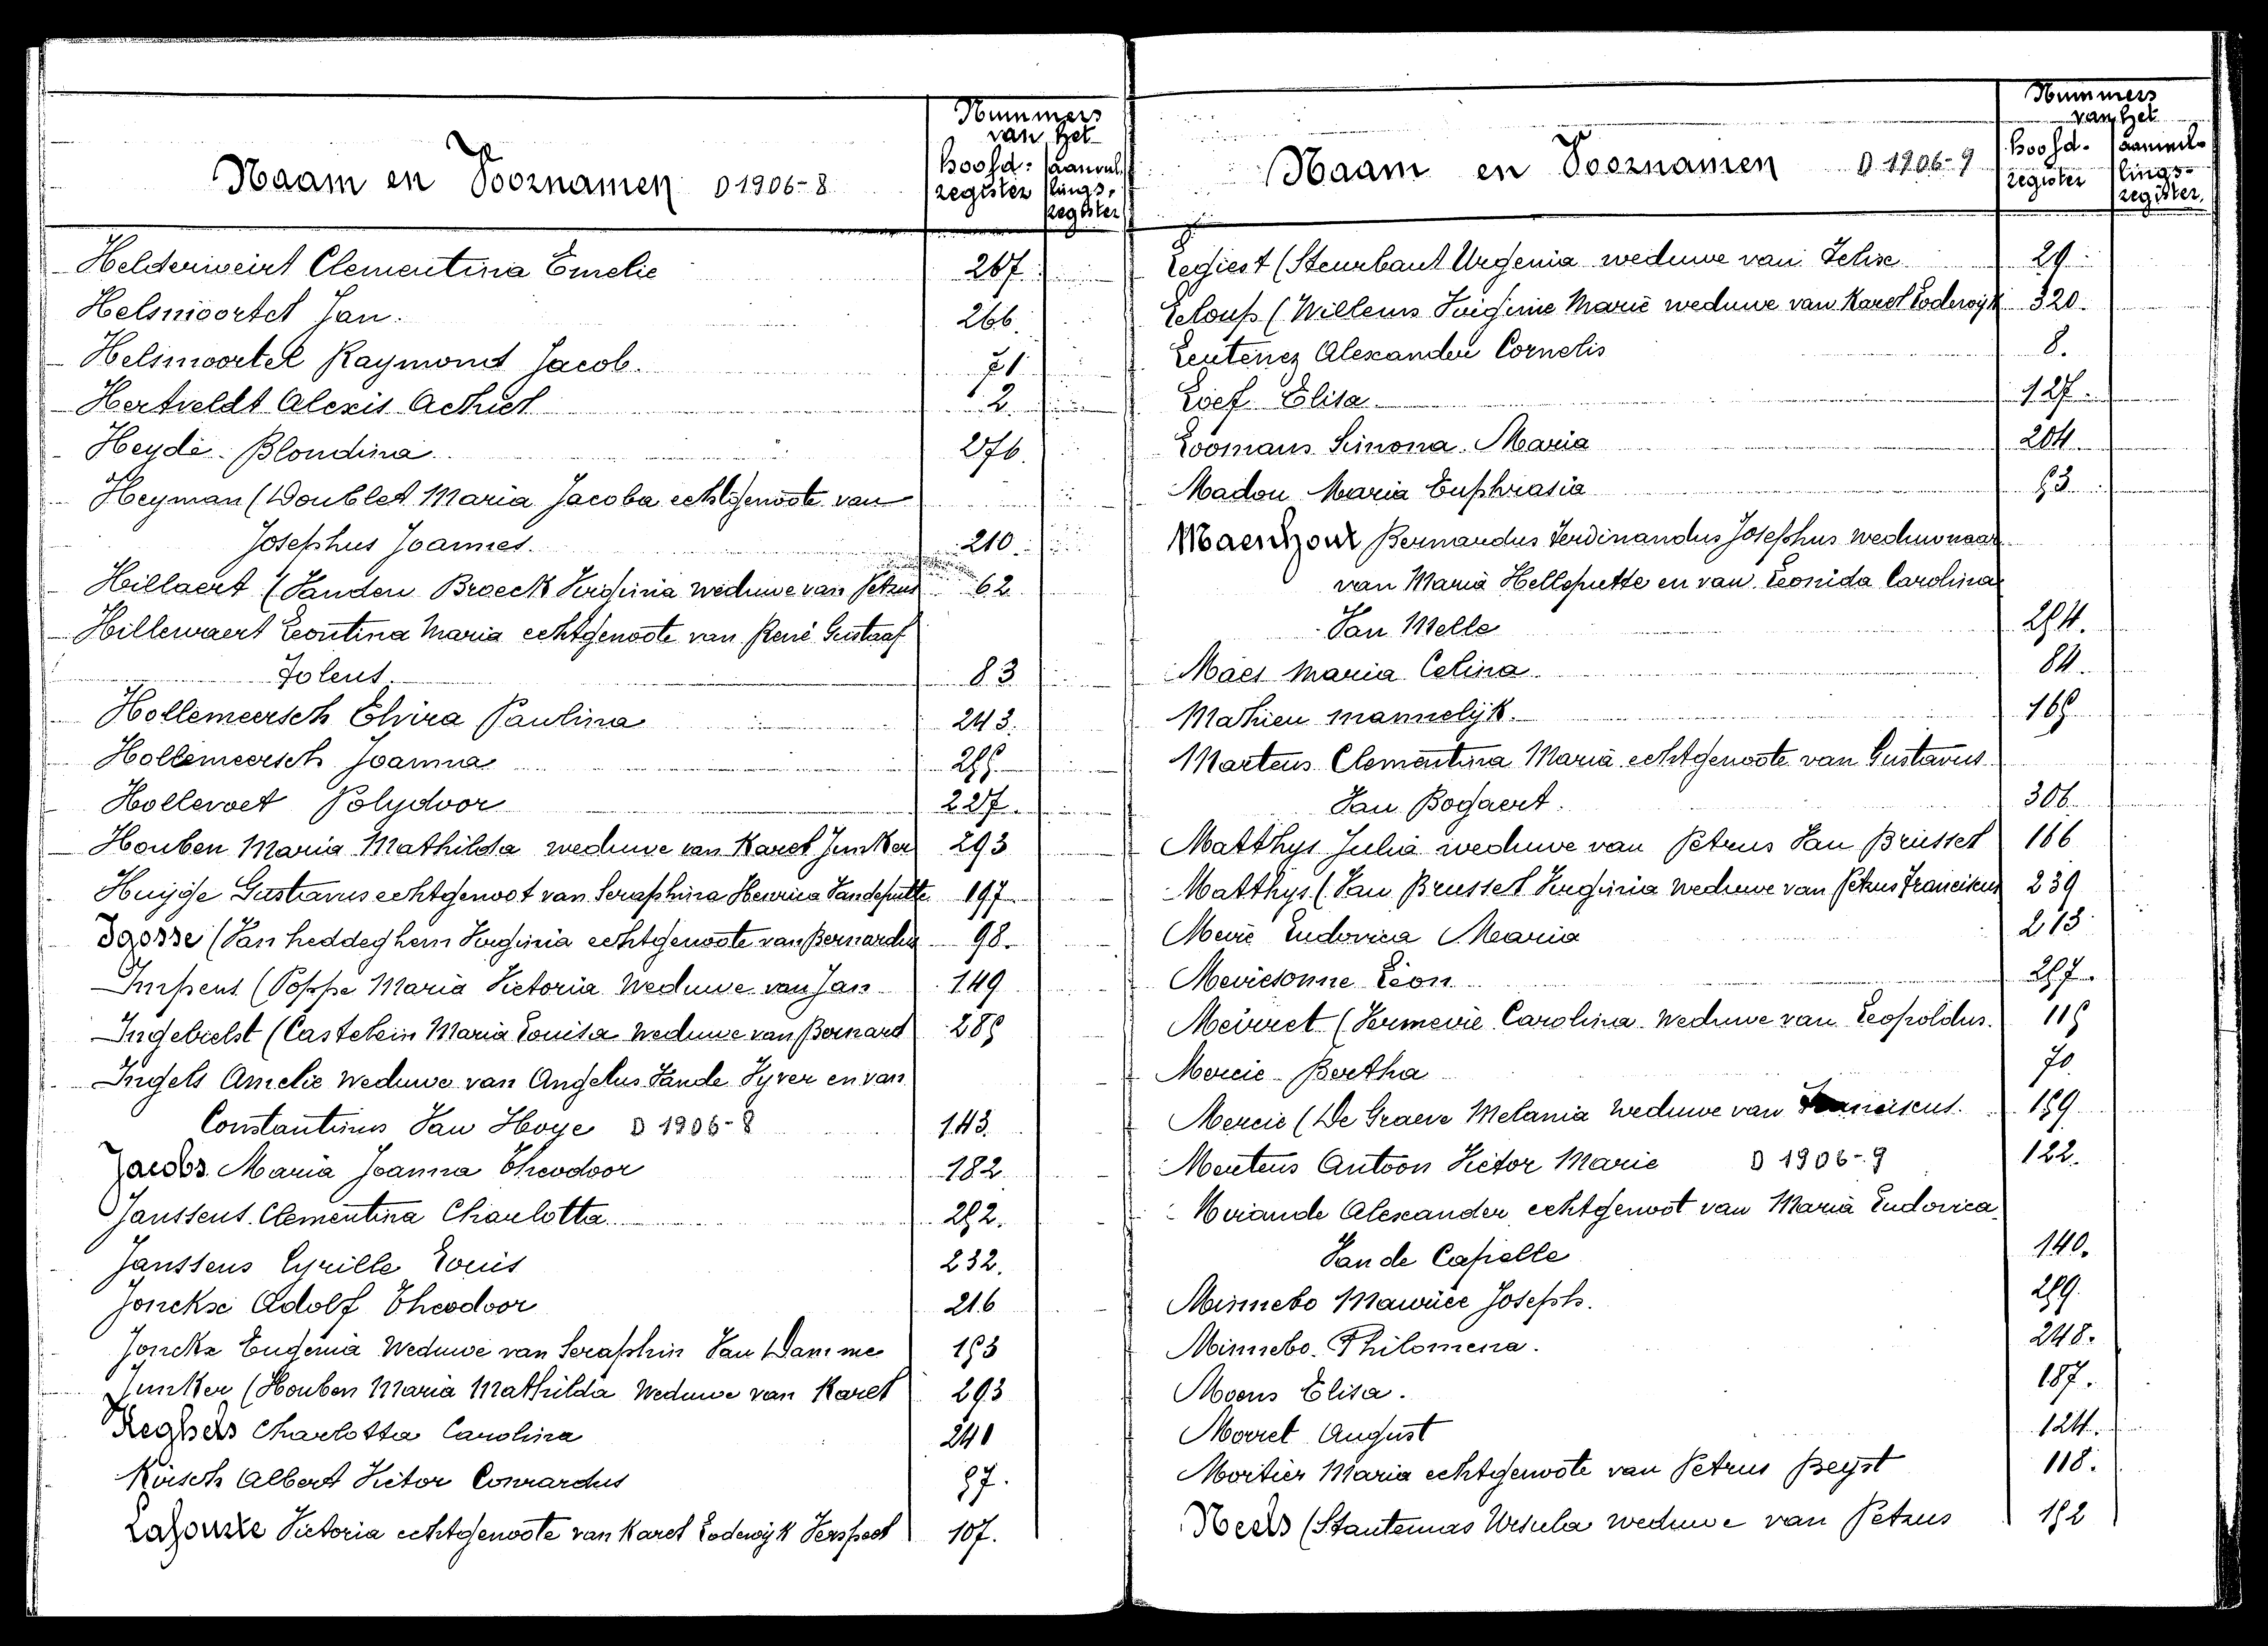 Nummers
van het
Naam en Voornamen D 1906-8
hoofd- register
aanvullings- register
Helderweirt Clementina Emelie 267
Helsmoortel Jan. 266.
Helsmoortel Raymond Jacob. 71
Hertveldt Alexis Achiel 2
Heyde Blondina 276.
Heyman (Doublet Maria Jacoba echtgenoote van
Josephus Joannes. 210.
Hillaert (Vanden Broeck Virginia weduwe van Petrus 62
Hillewaert Leontina Maria echtgenoote van René Gustaaf
Folens 83
Hollemeersch Elvira Paulina 243.
Hollemeersch Joanna
Hollevoet Polydoor 227.
Houben Maria Mathilda weduwe van Karel Junker 293
Huyge Gustavus echtgenoot van Seraphina Henrica Vandeputte 197
(Van heddeghem Virginia echtgenoote van Bernardus 98.
Impens (Poppe Maria Victoria Weduwe van Jan 149
Ingebielst (Castelein Maria Louisa Weduwe van Bernard 285
Ingels Amelie Weduwe van Angelus Vande Vyver en van
Constantinus Van Hoye D 1906-8 143.
Jacobs Maria Joanna Theodoor 182
Janssens Clementina Charlotta 252.
Janssens Cyrille Louis 232.
Jonckx Adolf Theodoor 216
Jonckx Eugenia Weduwe van Seraphin Van Damme 153
Junker (Houben Maria Mathilda Weduwe van Karel 293
Keghels Charlotta Carolina 240
Kirsch Albert Victor Conrardus 57.
Victoria echtgenoote van Karel Lodewijk Verspeet 107.
Nummers
van het
Naam en Voornamen D 1906-9
hoofd- register
aanvullings- register
Legiest (Steurbaut Urgenia weduwe van Felix 29
Leloup (Willems Virginie Marie weduwe van Karel Lodewijk 320.
Leutenez Alexander Cornelis 8.
Lief Elisa 127.
Loomans Simona Maria 204
Madou Maria Euphrasia 53
Maenhout Bernardus Ferdinandus Josephus weduwnaar
van Maria Helleputte en van Leonida Carolina
Van Melle 254.
Maes Maria Celina 84.
Mathieu mannelijk. 165
Martens Clementina Maria echtgenoote van Gustavus
Van Bogaert. 306.
Matthys Julia weduwe van Petrus Van Brussel 166
Matthys (Van Brussel Virginia Weduwe van Petrus Franciscus 239
Ludovica Maria 213
Mevisonne Leon 257.
Meuret (Vermeire Carolina Weduwe van Leopoldus. 115
Mercie Bertha 70.
Mercie (De Graeve Melania Weduwe van Franciscus. 159
Mertens Antoon Victor Marie D 1906-9 122.
Alexander echtgenoot van Maria Ludovica
Van de Capelle 140.
Minnebo Maurice Joseph. 259.
Minnebo Philomena. 248.
Moens Elisa. 187.
August 124.
Mortier Maria echtgenoote van Petrus Beyst 118.
Neels (Stautemas Ursula weduwe van Petrus 152